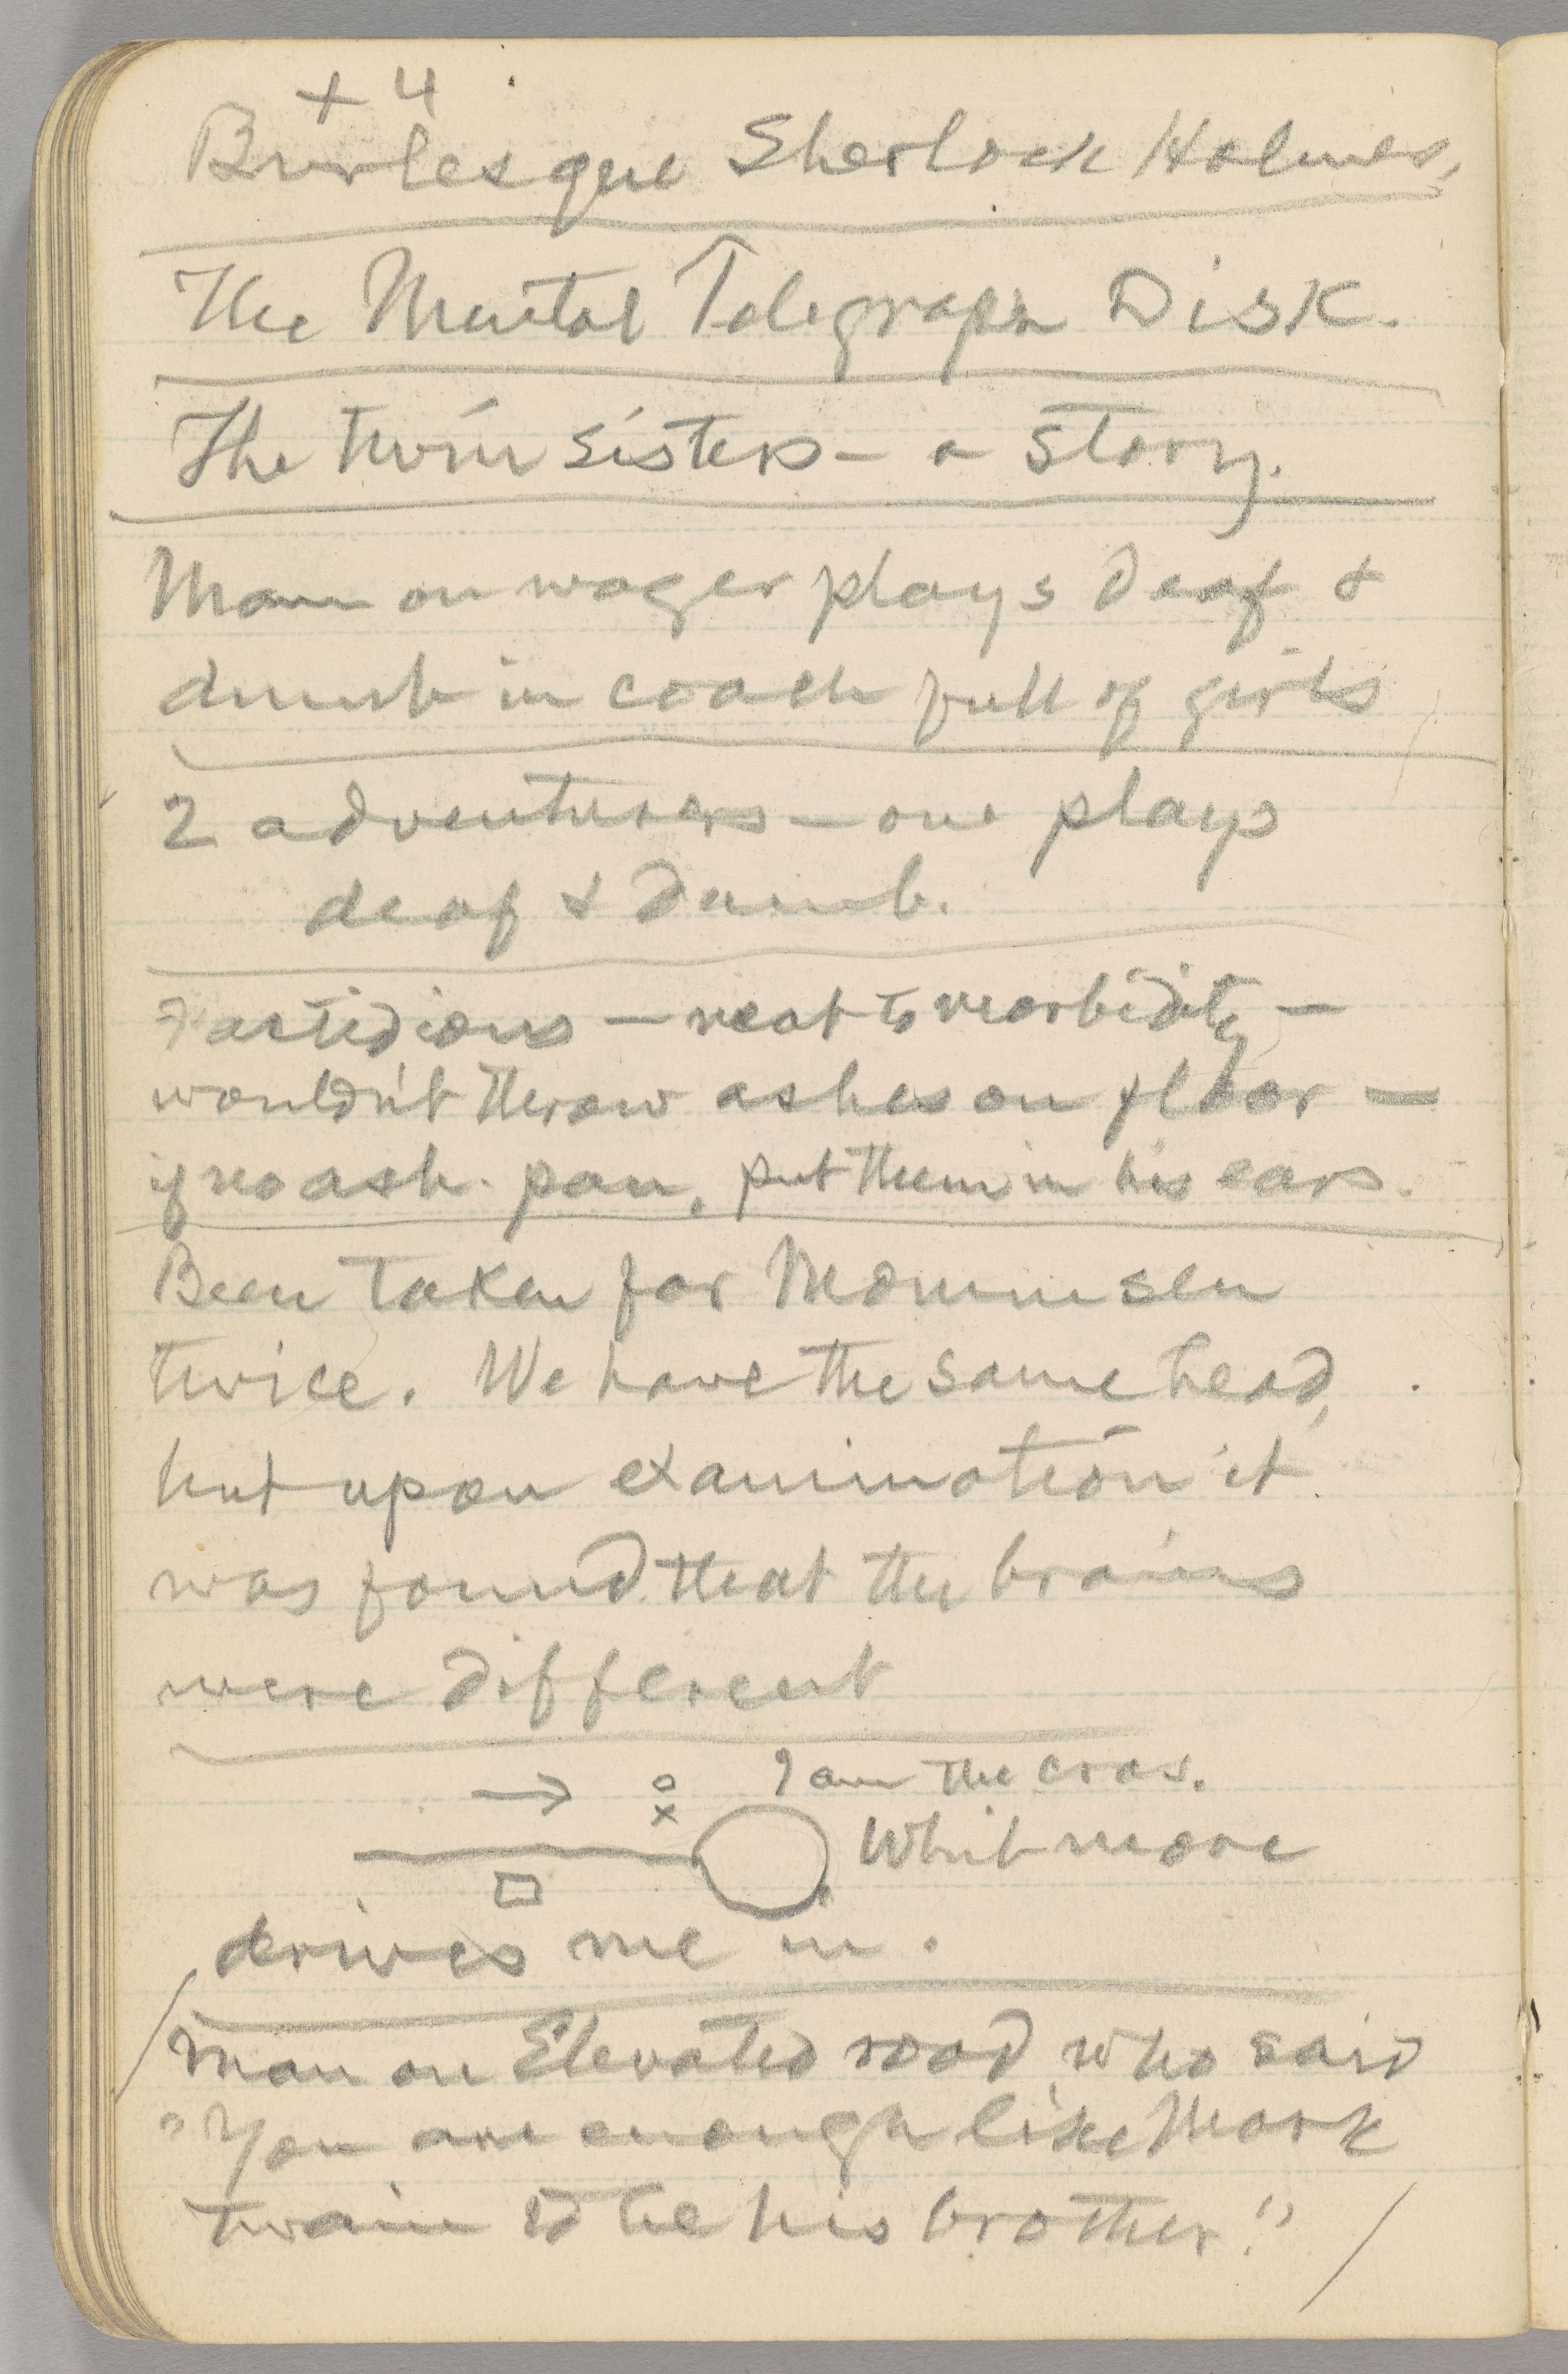 + 4
Burlesque Sherlock Holmes.
The Mental Telegraph Disk.
The twin sisters — a story.
Man on wager plays deaf &
dumb in coach full of girls
2 adventurers — one plays
deaf & dumb.
Fastidious — neat to morbidity —
wouldn't throw ashes on floor —
if no ash-pan, put them in his ears.
Been taken for Mommsen
twice. We have the same head,
but upon examination it
was found that the brains
were different
I am the cros.
Whitmore
drives me in.
Man on Elevated road who said
"You are enough like Mark
Twain to be his brother."